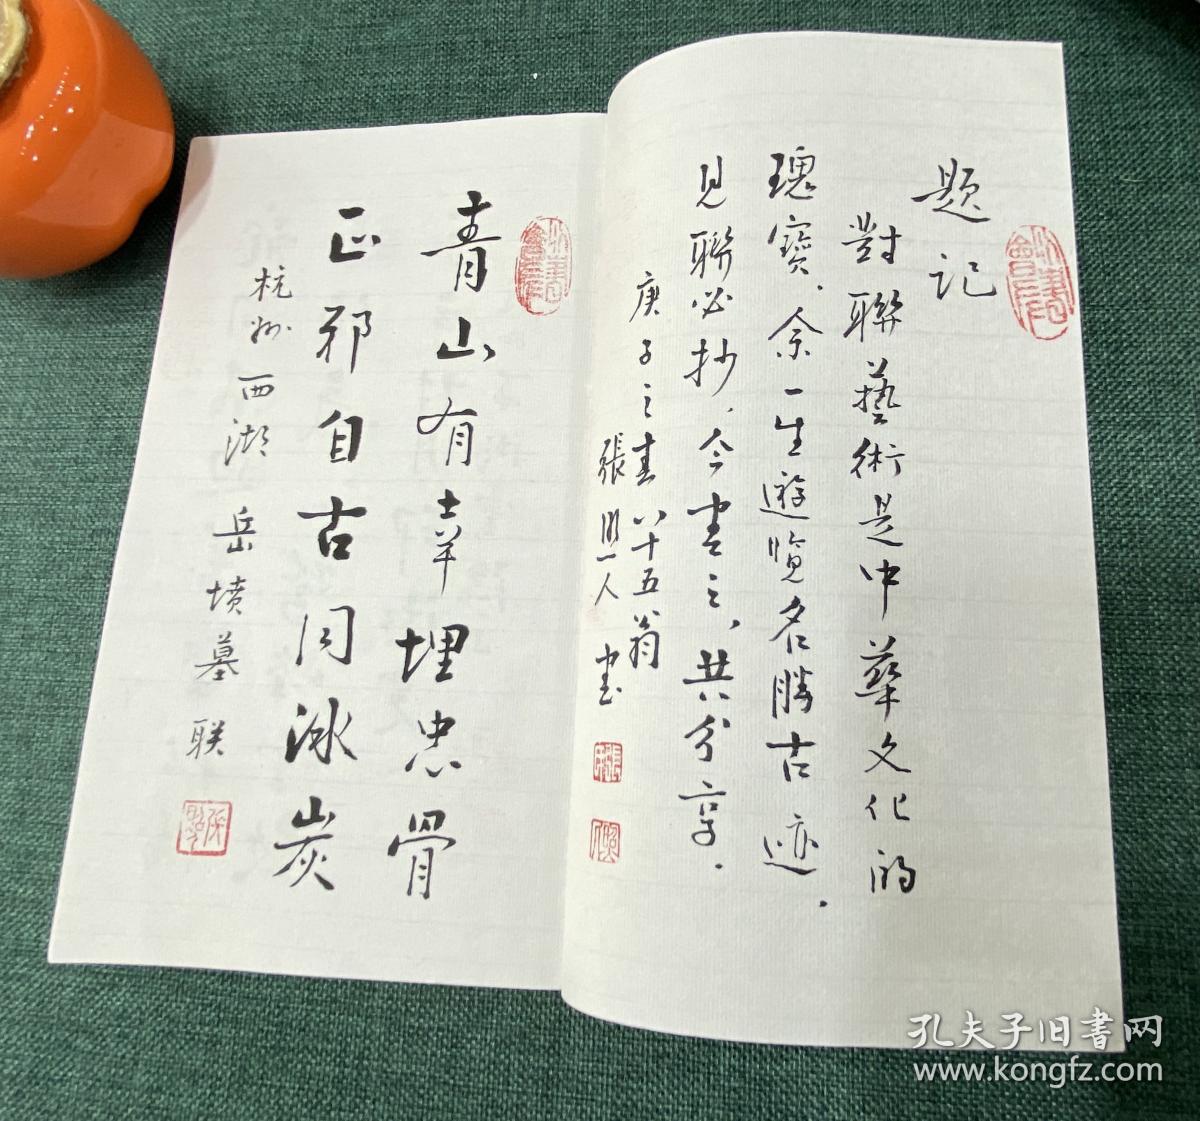 题记
對聯藝術是中華文化的
瑰寶、余一生遊览名勝古迹，
見聯必抄，今書之，共分享．
庚子之春八十五翁
張 人書
青山有幸埋忠骨
正邪自古同冰炭
杭州西湖岳坟墓联
孔夫子旧书网
www.kongfz.com